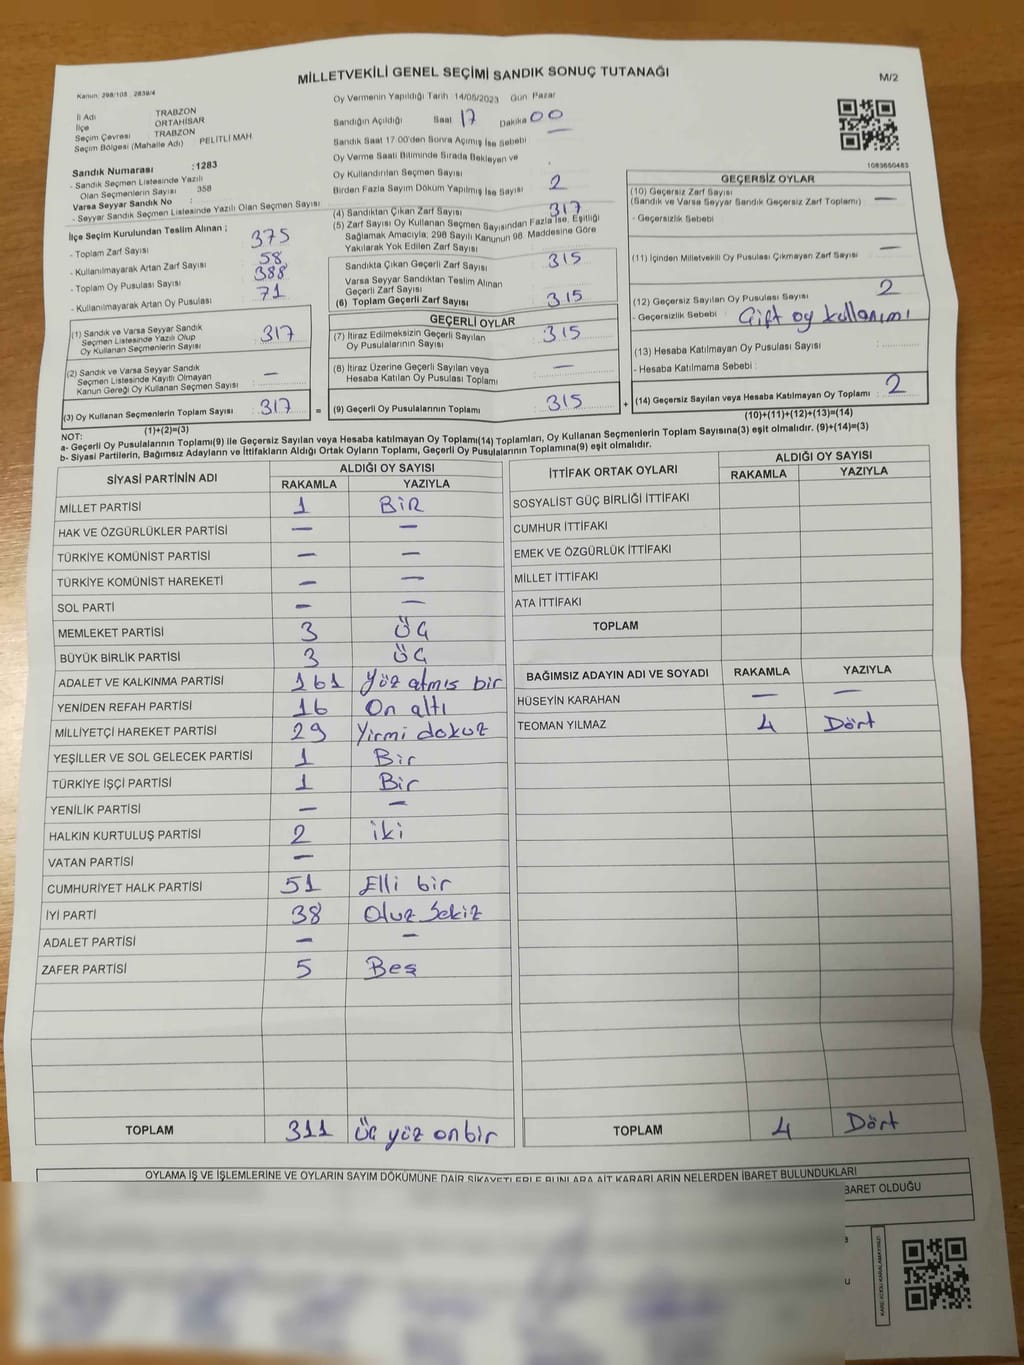 MİLLETVEKİLİ GENEL SEÇİMİ SANDIK SONUÇ TUTANAĞI
M/2
Kanun: 298/105 , 2839/4
Oy Vermenin Yapıldığı Tarih :14/05/2023 Gün: Pazar
İl Adı TRABZON
İlçe ORTAHİSAR
Seçim Çevresi TRABZON
Seçim Bölgesi (Mahalle Adı) PELİTLİ MAH
Sandığın Açıldığı Saat 17 Dakika 00
Sandık Saat 17:00'den Sonra Açılmış İse Sebebi
Oy Verme Saati Bitiminde Sırada Bekleyen ve
Oy Kullandırılan Seçmen Sayısı
Birden Fazla Sayım Döküm Yapılmış İse Sayısı 2
1083650483
Sandık Numarası :1283
- Sandık Seçmen Listesinde Yazılı
Olan Seçmenlerin Sayısı 358
Varsa Seyyar Sandık No :
- Seyyar Sandık Seçmen Listesinde Yazılı Olan Seçmen Sayısı
İlçe Seçim Kurulundan Teslim Alınan ;
- Toplam Zarf Sayısı 375
- Kullanılmayarak Artan Zarf Sayısı 58
- Toplam Oy Pusulası Sayısı 388
- Kullanılmayarak Artan Oy Pusulası 71
(1) Sandık ve Varsa Seyyar Sandık
Seçmen Listesinde Yazılı Olup
Oy Kullanan Seçmenlerin Sayısı 317
(2) Sandık ve Varsa Seyyar Sandık
Seçmen Listesinde Kayıtlı Olmayan
Kanun Gereği Oy Kullanan Seçmen Sayısı : —
(3) Oy Kullanan Seçmenlerin Toplam Sayısı 317 =
(1)+(2)=(3)
(4) Sandıktan Çıkan Zarf Sayısı 317
(5) Zarf Sayısı Oy Kullanan Seçmen Sayısından Fazla İse, Eşitliği
Sağlamak Amacıyla; 298 Sayılı Kanunun 98. Maddesine Göre
Yakılarak Yok Edilen Zarf Sayısı
Sandıkta Çıkan Geçerli Zarf Sayısı 315
Varsa Seyyar Sandıktan Teslim Alınan
Geçerli Zarf Sayısı
(6) Toplam Geçerli Zarf Sayısı 315
GEÇERLİ OYLAR
(7) İtiraz Edilmeksizin Geçerli Sayılan
Oy Pusulalarının Sayısı 315
(8) İtiraz Üzerine Geçerli Sayılan veya
Hesaba Katılan Oy Pusulası Toplamı —
(9) Geçerli Oy Pusulalarının Toplamı 315 +
GEÇERSİZ OYLAR
(10) Geçersiz Zarf Sayısı
(Sandık ve Varsa Seyyar Sandık Geçersiz Zarf Toplamı) —
- Geçersizlik Sebebi
(11) İçinden Milletvekili Oy Pusulası Çıkmayan Zarf Sayısı —
(12) Geçersiz Sayılan Oy Pusulası Sayısı 2
- Geçersizlik Sebebi : Çift oy kullanımı
(13) Hesaba Katılmayan Oy Pusulası Sayısı
- Hesaba Katılmama Sebebi :
(14) Geçersiz Sayılan veya Hesaba Katılmayan Oy Toplamı 2
(10)+(11)+(12)+(13)=(14)
NOT:
a- Geçerli Oy Pusulalarının Toplamı(9) ile Geçersiz Sayılan veya Hesaba katılmayan Oy Toplamı(14) Toplamları, Oy Kullanan Seçmenlerin Toplam Sayısına(3) eşit olmalıdır. (9)+(14)=(3)
b- Siyasi Partilerin, Bağımsız Adayların ve İttifakların Aldığı Ortak Oyların Toplamı, Geçerli Oy Pusulalarının Toplamına(9) eşit olmalıdır.
SİYASİ PARTİNİN ADI ALDIĞI OY SAYISI
RAKAMLA YAZIYLA
MİLLET PARTİSİ 1 BİR
HAK VE ÖZGÜRLÜKLER PARTİSİ — —
TÜRKİYE KOMÜNİST PARTİSİ — —
TÜRKİYE KOMÜNİST HAREKETİ — —
SOL PARTİ — —
MEMLEKET PARTİSİ 3 ÜÇ
BÜYÜK BİRLİK PARTİSİ 3 ÜÇ
ADALET VE KALKINMA PARTİSİ 161 Yüz atmış bir
YENİDEN REFAH PARTİSİ 16 On altı
MİLLİYETÇİ HAREKET PARTİSİ 29 Yirmi dokuz
YEŞİLLER VE SOL GELECEK PARTİSİ 1 Bir
TÜRKİYE İŞÇİ PARTİSİ 1 Bir
YENİLİK PARTİSİ — —
HALKIN KURTULUŞ PARTİSİ 2 iki
VATAN PARTİSİ —
CUMHURİYET HALK PARTİSİ 51 Elli bir
İYİ PARTİ 38 Otuz Sekiz
ADALET PARTİSİ — —
ZAFER PARTİSİ 5 Beş
TOPLAM 311 Üç yüz onbir
İTTİFAK ORTAK OYLARI ALDIĞI OY SAYISI
RAKAMLA YAZIYLA
SOSYALİST GÜÇ BİRLİĞİ İTTİFAKI
CUMHUR İTTİFAKI
EMEK VE ÖZGÜRLÜK İTTİFAKI
MİLLET İTTİFAKI
ATA İTTİFAKI
TOPLAM
BAĞIMSIZ ADAYIN ADI VE SOYADI RAKAMLA YAZIYLA
HÜSEYİN KARAHAN — —
TEOMAN YILMAZ 4 Dört
TOPLAM 4 Dört
OYLAMA İŞ VE İŞLEMLERİNE VE OYLARIN SAYIM DÖKÜMÜNE DAİR ŞİKAYETLERLE BUNLARA AİT KARARLARIN NELERDEN İBARET BULUNDUKLARI
BARET OLDUĞU
KARE KODU KARALAMAYINIZ!